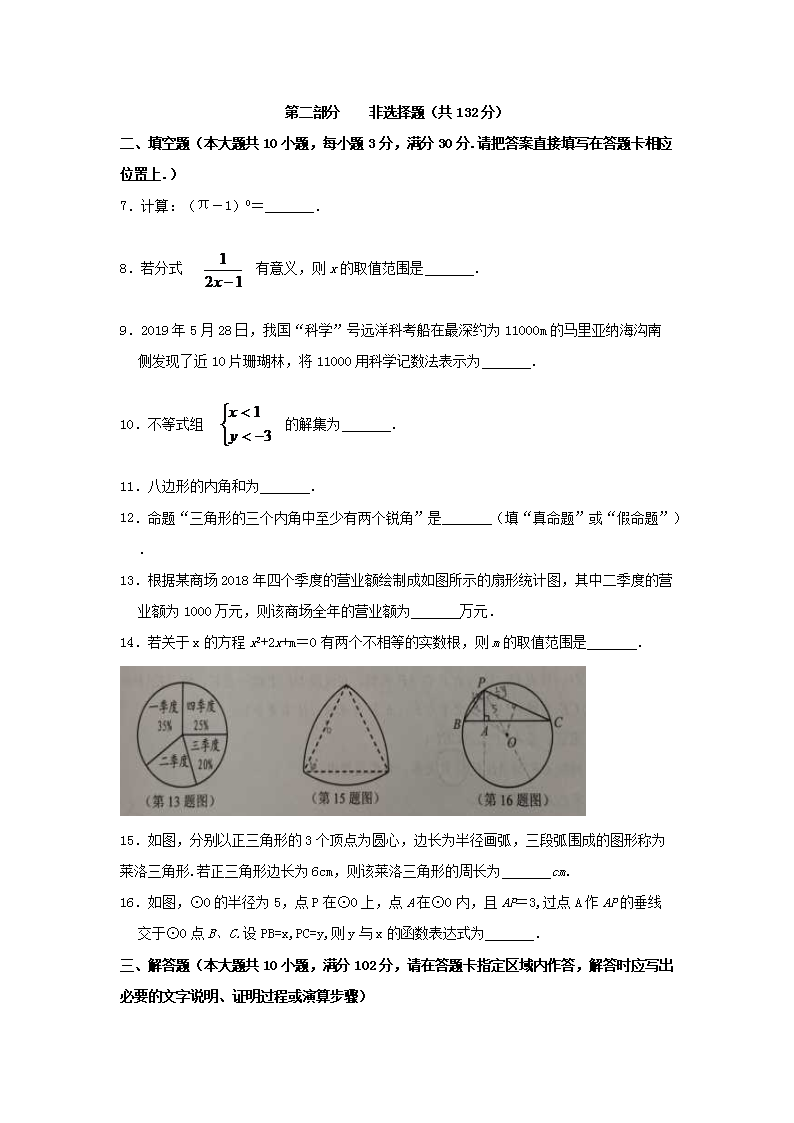 第二部分 非选择题（共 132 分）
二、填空题（本大题共 10 小题，每小题 3 分，满分 30 分.请把答案直接填写在答题卡相应
位置上.）
7.计算：（π－1）⁰＝_______.
8.若分式 1/(2x－1) 有意义，则 x 的取值范围是_______.
9.2019 年 5 月 28 日，我国“科学”号远洋科考船在最深约为 11000m 的马里亚纳海沟南
侧发现了近 10 片珊瑚林，将 11000 用科学记数法表示为_______.
10.不等式组 { x < 1
y < －3 的解集为_______.
11.八边形的内角和为_______.
12.命题“三角形的三个内角中至少有两个锐角”是_______（填“真命题”或“假命题”）
.
13.根据某商场 2018 年四个季度的营业额绘制成如图所示的扇形统计图，其中二季度的营
业额为 1000 万元，则该商场全年的营业额为_______万元.
14.若关于 x 的方程 x²+2x+m＝0 有两个不相等的实数根，则 m 的取值范围是_______.
一季度
35%
四季度
25%
三季度
20%
二季度
(第13题图)
(第15题图)
P
B
A
C
O
(第16题图)
15.如图，分别以正三角形的 3 个顶点为圆心，边长为半径画弧，三段弧围成的图形称为
莱洛三角形.若正三角形边长为 6cm，则该莱洛三角形的周长为_______cm.
16.如图，⊙O 的半径为 5，点 P 在⊙O 上，点 A 在⊙O 内，且 AP＝3,过点 A 作 AP 的垂线
交于⊙O 点 B、C.设 PB=x,PC=y,则 y 与 x 的函数表达式为_______.
三、解答题（本大题共 10 小题，满分 102 分，请在答题卡指定区域内作答，解答时应写出
必要的文字说明、证明过程或演算步骤）